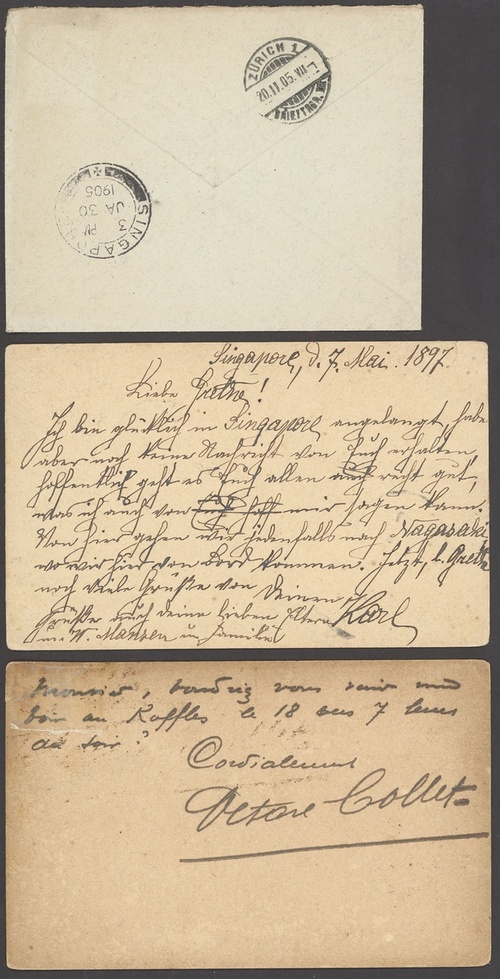 ZÜRICH 1
20.11.05. VII
BRIEFTRÄG.
SINGAPORE
3 PM
JA 30
1905
Singapore, d. 7. Mai. 1897.
Liebe Grethe!
Ich bin glücklich in Singapore angelangt, habe
aber noch keine Nachricht von Euch erhalten,
hoffentlich geht es Euch allen noch recht gut,
was ich auch von mir sagen kann.
Von hier gehen wir jedenfalls nach Nagasaki
wo wir hier von Bord kommen. Jetzt, l. Grethe
noch viele Grüße von Deinem Karl
Grüße auch deine lieben Eltern
u. Familie
Monsieur, voudriez vous venir me
voir au Raffles le 18 vers 7 heures
du soir?
Cordialement
Collet